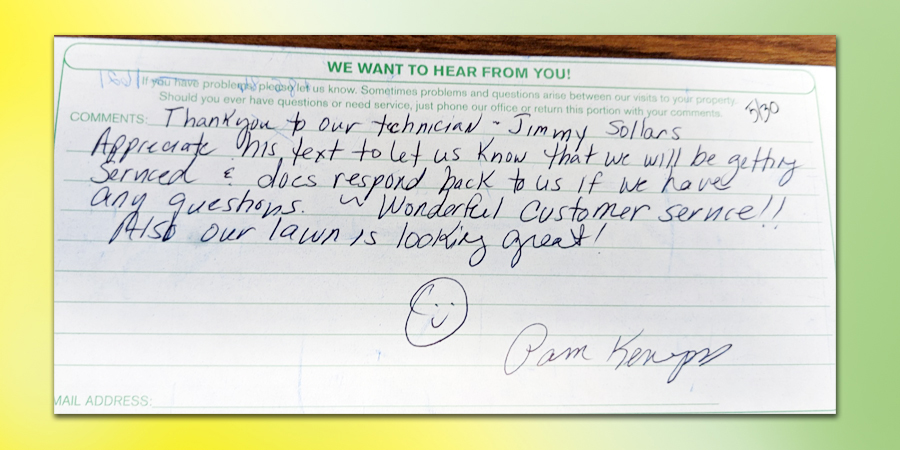 WE WANT TO HEAR FROM YOU!
If you have problems, please let us know. Sometimes problems and questions arise between our visits to your property.
Should you ever have questions or need service, just phone our office or return this portion with your comments.
5/30
COMMENTS: Thankyou to our technician - Jimmy Sollars
Appreciate his text to let us know that we will be getting
Serviced & does respond back to us if we have
any questions. ~ Wonderful Customer service!!
Also our lawn is looking great!
Pam
MAIL ADDRESS: